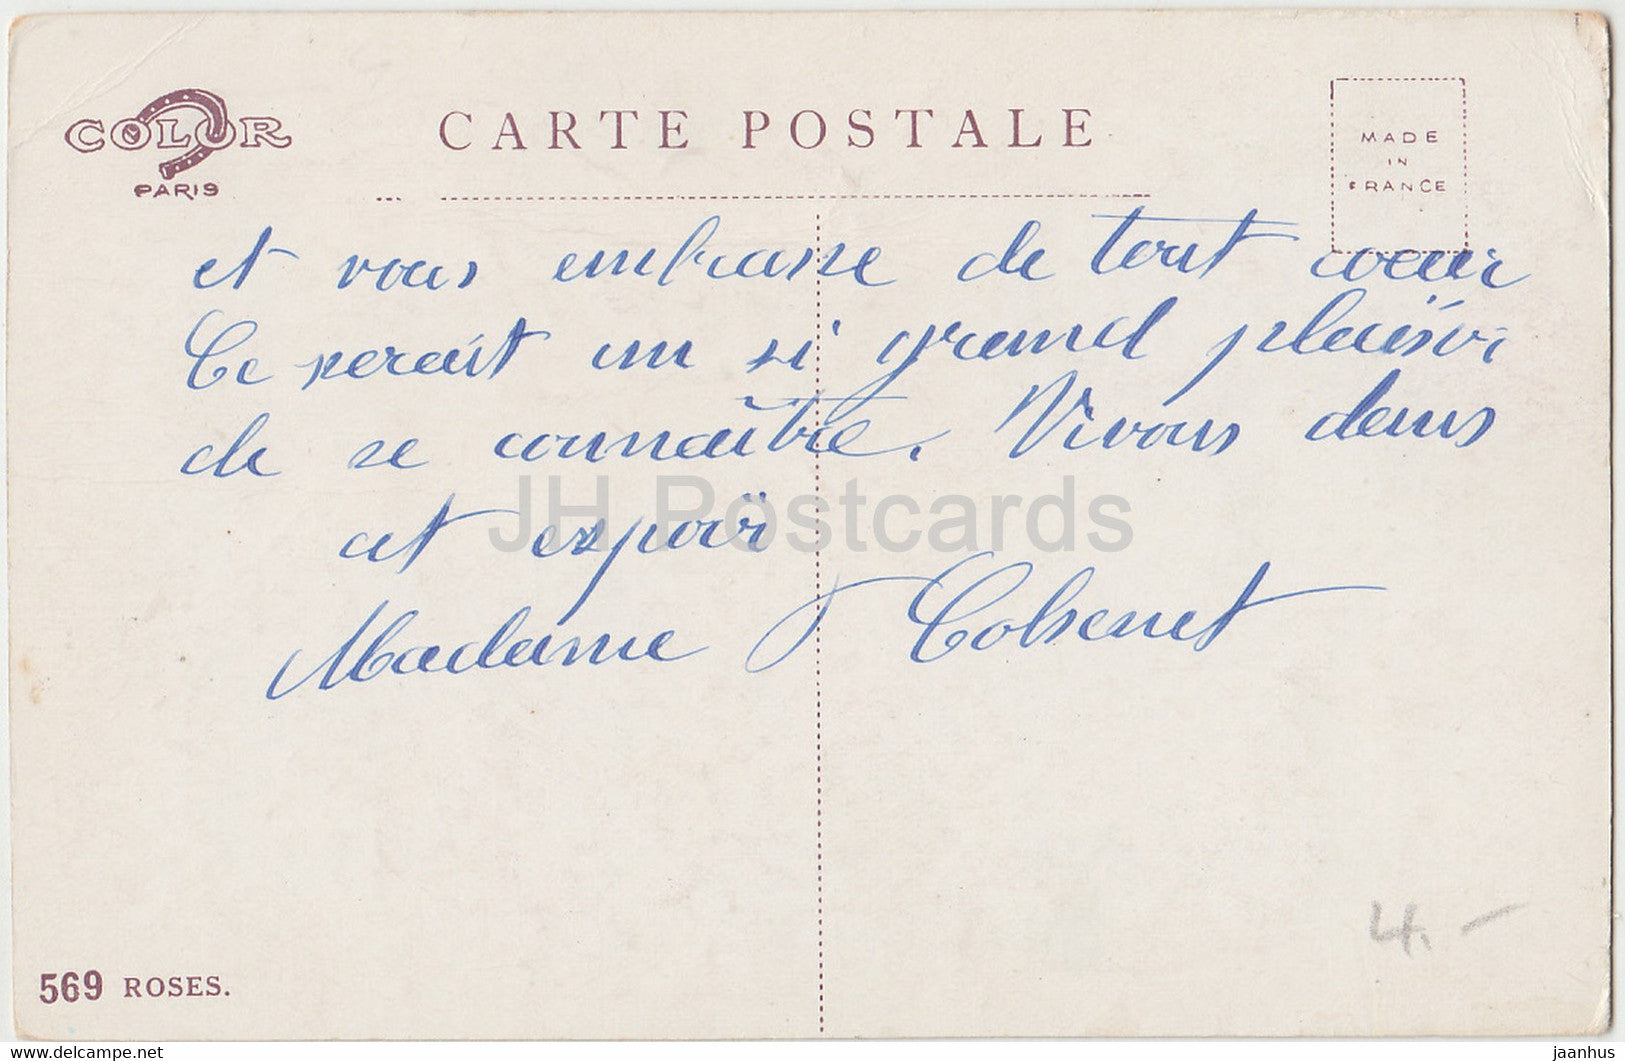 COLOR
PARIS
CARTE POSTALE
MADE
IN
FRANCE
et vous embrasse de tout coeur
Ce serait un si grand plaisir
de se connaître. Vivons dans
cet espoir
Madame
JH Postcards
4.-
569 ROSES.
www.delcampe.net
jaanhus